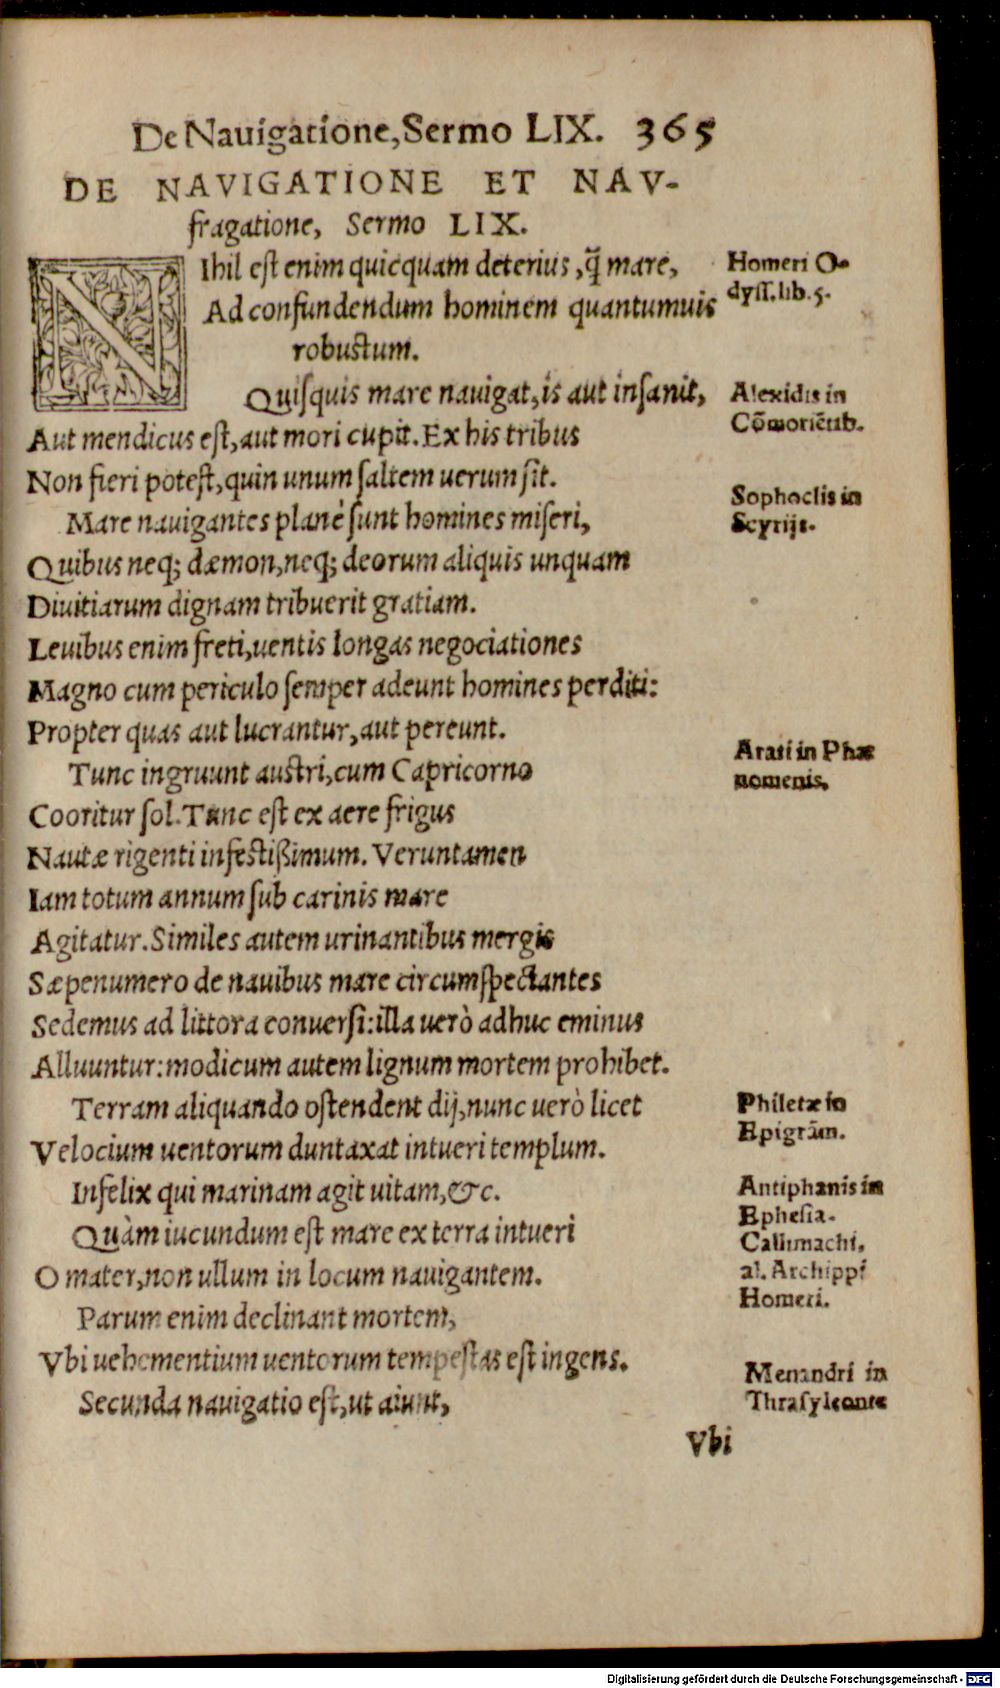 De Nauigatione, Sermo LIX. 365
DE NAVIGATIONE ET NAV-
fragatione, Sermo LIX.
NIhil est enim quicquam deterius, q̃ mare,
Homeri O-
dyss. lib. 5.
Ad confundendum hominem quantumuis
robustum.
Quisquis mare nauigat, is aut insanit,
Alexidis in
Cõmoriẽtib.
Aut mendicus est, aut mori cupit. Ex his tribus
Non fieri potest, quin unum saltem uerum sit.
Sophoclis in
Scyrijs.
Mare nauigantes planè sunt homines miseri,
Quibus neq; dæmon, neq; deorum aliquis unquam
Diuitiarum dignam tribuerit gratiam.
Leuibus enim freti, uentis longas negociationes
Magno cum periculo semper adeunt homines perditi:
Propter quas aut lucrantur, aut pereunt.
Arati in Phæ
nomenis.
Tunc ingruunt austri, cum Capricorno
Cooritur sol. Tunc est ex aere frigus
Nautæ rigenti infestißimum. Veruntamen
Iam totum annum sub carinis mare
Agitatur. Similes autem urinantibus mergis
Sæpenumero de nauibus mare circumspectantes
Sedemus ad littora conuersi: illa uerò adhuc eminus
Alluuntur: modicum autem lignum mortem prohibet.
Terram aliquando ostendent dij, nunc uerò licet
Philetæ in
Epigrãm.
Velocium uentorum duntaxat intueri templum.
Infelix qui marinam agit uitam, &c.
Antiphanis in
Ephesia.
Quàm iucundum est mare ex terra intueri
Callimachi,
al. Archippi
O mater, non ullum in locum nauigantem.
Parum enim declinant mortem,
Homeri.
Vbi uehementium uentorum tempestas est ingens.
Secunda nauigatio est, ut aiunt,
Menandri in
Thrasyleonte
Vbi
Digitalisierung gefördert durch die Deutsche Forschungsgemeinschaft - DFG